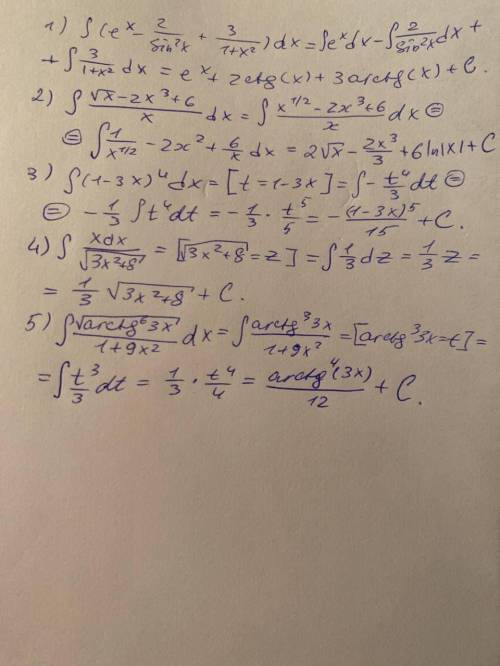 1) ∫(eˣ - 2/sin²x + 3/(1+x²))dx = ∫eˣdx - ∫2/sin²x dx +
+ ∫3/(1+x²) dx = eˣ + 2ctg(x) + 3arctg(x) + C.
2) ∫(√x - 2x³ + 6)/x dx = ∫(x^(1/2) - 2x³ + 6)/x dx ⊜
⊜ ∫1/x^(1/2) - 2x² + 6/x dx = 2√x - 2x³/3 + 6ln|x| + C
3) ∫(1-3x)⁴dx = [t = 1-3x] = ∫ - t⁴/3 dt ⊜
⊜ -1/3 ∫t⁴dt = -1/3 · t⁵/5 = -(1-3x)⁵/15 + C.
4) ∫xdx/√(3x²+8) = [√(3x²+8) = z] = ∫1/3 dz = 1/3 z =
= 1/3 √(3x²+8) + C.
5) ∫√(arctg⁶3x)/(1+9x²) dx = ∫arctg³3x/(1+9x²) = [arctg³3x = t] =
= ∫t³/3 dt = 1/3 · t⁴/4 = arctg⁴(3x)/12 + C.